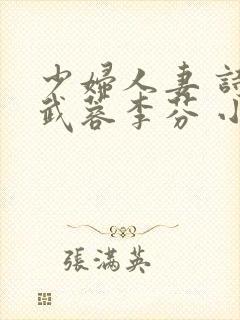 少婦人妻 詩
武蓉李芬 小
張满英